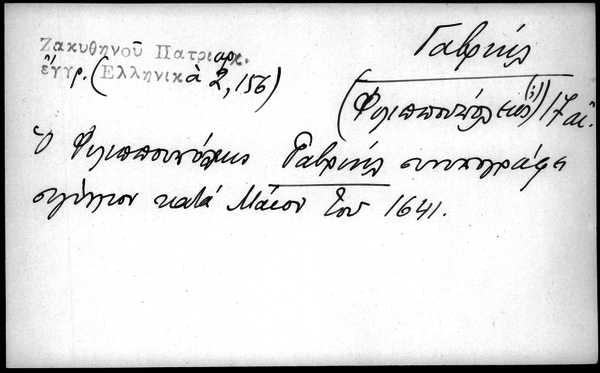 Ζακυθηνοῦ Πατριαρχ.
ἔγγρ. (Ἑλληνικὰ 2, 156)
Γαβριήλ
(Φιλιππουπόλεως (;)) 17 αἰ.
Ὁ Φιλιππουπόλεως Γαβριήλ συνυπογράφει
σιγίλλιον κατά Μάιον τοῦ 1641.